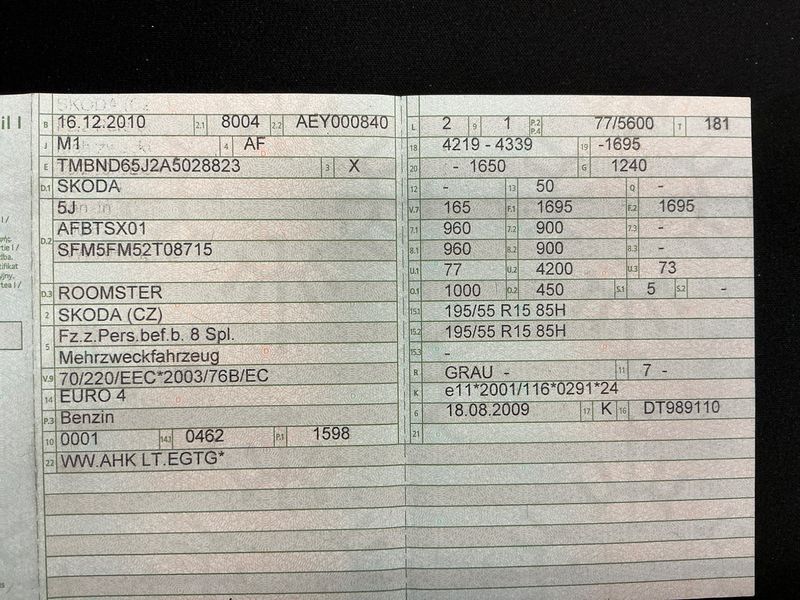 il I
B 16.12.2010 2.1 8004 2.2 AEY000840
J M1 4 AF
E TMBND65J2A5028823 3 X
D.1 SKODA
5J
D.2 AFBTSX01
SFM5FM52T08715
D.3 ROOMSTER
2 SKODA (CZ)
5 Fz.z.Pers.bef.b. 8 Spl.
Mehrzweckfahrzeug
V.9 70/220/EEC*2003/76B/EC
14 EURO 4
P.3 Benzin
10 0001 14.1 0462 P.1 1598
22 WW.AHK LT.EGTG*
L 2 9 1 P.2 P.4 77/5600 T 181
18 4219 - 4339 19 -1695
20 - 1650 G 1240
12 - 13 50 Q -
V.7 165 F.1 1695 F.2 1695
7.1 960 7.2 900 7.3 -
8.1 960 8.2 900 8.3 -
U.1 77 U.2 4200 U.3 73
O.1 1000 O.2 450 S.1 5 S.2 -
15.1 195/55 R15 85H
15.2 195/55 R15 85H
15.3 -
R GRAU - 11 7 -
K e11*2001/116*0291*24
6 18.08.2009 17 K 16 DT989110
21